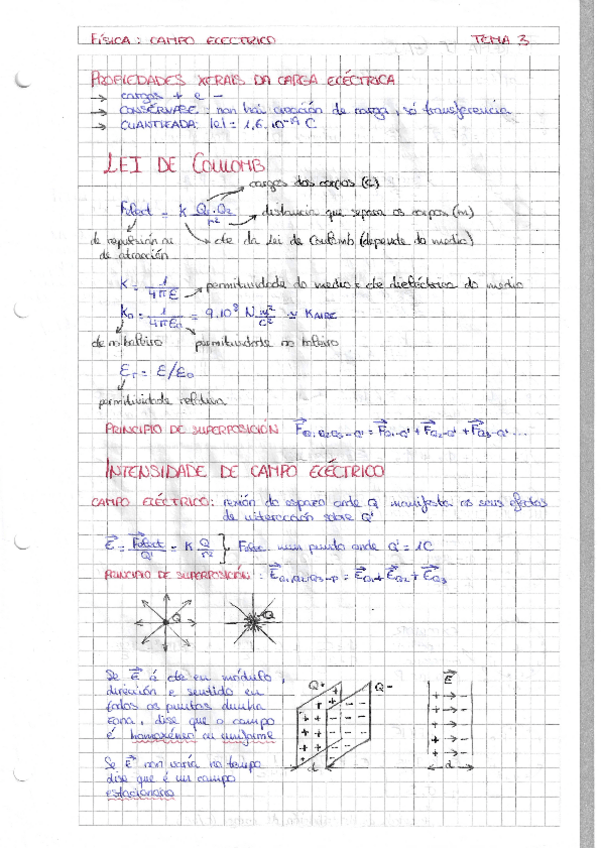 FÍSICA: CAMPO ELÉCTRICO TEMA 3
PROPIEDADES XERAIS DA CARGA ELÉCTRICA
→ cargas + e -
→ CONSÉRVASE: non hai creación de carga, só transferencia
→ CUANTIZADA: |e| = 1,6·10⁻¹⁹ C
LEI DE COULOMB
cargas dos corpos (C)
Felect = K Q₁·Q₂/r² → distancia que separa os corpos (m)
de repulsión ou de atracción
cte da Lei de Coulomb (depende do medio)
K = 1/4πε → permitividade do medio ou cte dieléctrica do medio
K₀ = 1/4πε₀ = 9·10⁹ N·m²/C² ≃ KAIRE
de no baleiro permitividade no baleiro
εr = ε/ε₀
permitividade relativa
PRINCIPIO DE SUPERPOSICIÓN F⃗Q₁Q₂Q₃...-Q' = F⃗Q₁-Q' + F⃗Q₂-Q' + F⃗Q₃-Q' ...
INTENSIDADE DE CAMPO ELÉCTRICO
CAMPO ELÉCTRICO: rexión do espazo onde Q manifesta os seus efectos
de interacción sobre Q'
E⃗ = F⃗elect/Q' = K Q/r² } Felec. nun punto onde Q' = 1C
PRINCIPIO DE SUPERPOSICIÓN: E⃗Q₁,Q₂,Q₃-P = E⃗Q₁ + E⃗Q₂ + E⃗Q₃
Q -Q
Se E⃗ é cte en módulo,
dirección e sentido en
todos os puntos dunha
zona, dise que o campo
é homoxéneo ou uniforme
Q+ Q- E⃗
d d
Se E⃗ non varía no tempo
dise que é un campo
estacionario